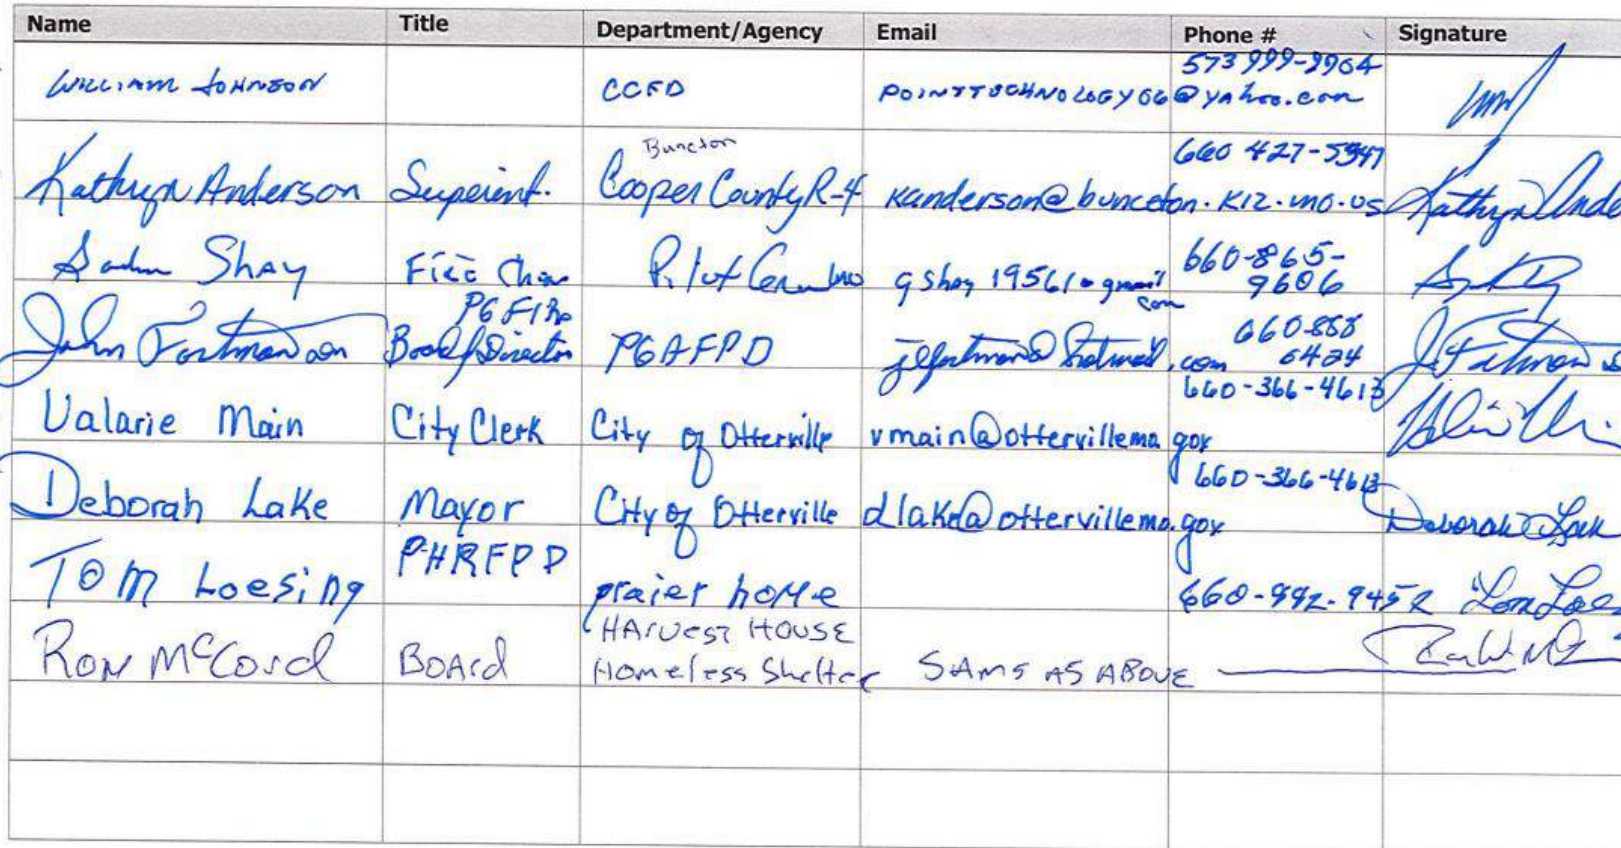 Name Title Department/Agency Email Phone # Signature
WILLIAM JOHNSON CCFD POINTTECHNOLOGY66@yahoo.com 573 999-9964
Kathryn Anderson Superint. Bunceton Cooper County R-4 kanderson@bunceton.k12.mo.us 660 427-5347 Kathryn Ande
Shay Fire Pilot gshay19561@gmail.com 660-865-9606
John PG Fire Board of Director PGAFPD @hotmail.com 660-888 6424
Valarie Main City Clerk City of Otterville vmain@ottervillemo.gov 660-366-4613
Deborah Lake Mayor City of Otterville dlake@ottervillemo.gov 660-366-4613 Deborah Lake
TOM Loesing PHRFPD praier home 660-992-9452 Tom Loes
Ron McCord BOARD HARVEST HOUSE Homeless Shelter SAMS AS ABOVE